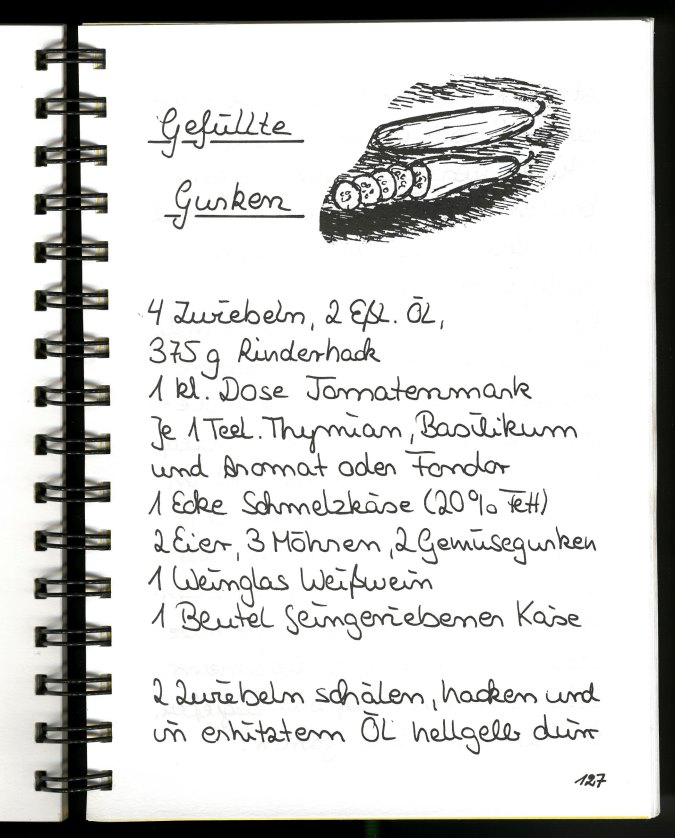 Gefüllte
Gurken
4 Zwiebeln, 2 Eßl. Öl,
375 g Rinderhack
1 kl. Dose Tomatenmark
Je 1 Teel. Thymian, Basilikum
und Aromat oder Fondor
1 Ecke Schmelzkäse (20% Fett)
2 Eier, 3 Möhren, 2 Gemüsegurken
1 Weinglas Weißwein
1 Beutel feingeriebener Käse
2 Zwiebeln schälen, hacken und
in erhitztem Öl hellgelb dün-
127